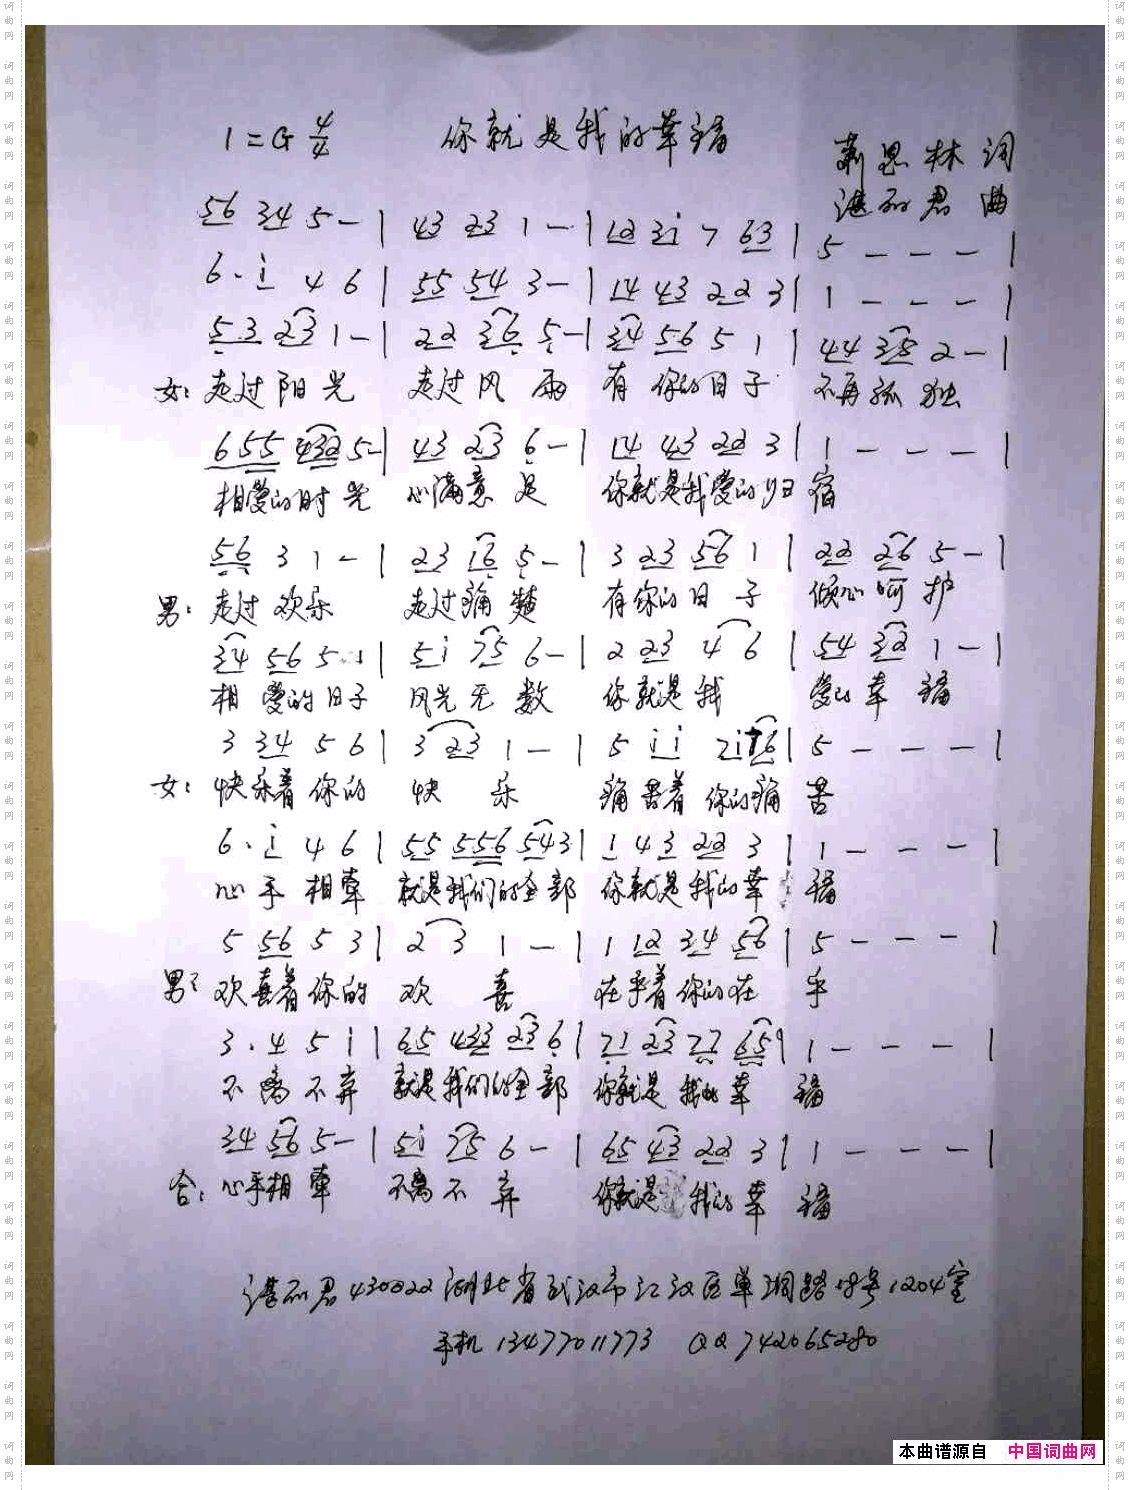 1=G 4/4 你就是我的幸福
荆思林 词
谌丽君 曲
56 34 5 - | 43 23 1 - | 12 3i 7 63 | 5 - - - |
6 · i 4 6 | 55 54 3 - | 14 43 22 3 | 1 - - - |
5 3 23 1 - | 22 36 5 - | 34 56 5 1 | 44 35 2 - |
女: 走过阳光 走过风雨 有你的日子 不再孤独
655 432 5 - | 43 23 6 - | 14 43 22 3 | 1 - - - |
相爱的时光 心满意足 你就是我爱的归宿
56 3 1 - | 23 16 5 - | 3 23 56 1 | 22 26 5 - |
男: 走过欢乐 走过痛楚 有你的日子 倾心呵护
34 56 5 1 | 5i 75 6 - | 2 23 4 6 | 54 32 1 - |
相爱的日子 风光无数 你就是我 爱的幸福
3 34 5 6 | 3 23 1 - | 5 i i 2i 76 | 5 - - - |
女: 快乐着你的快乐 痛苦着你的痛苦
6 · i 4 6 | 55 556 543 | 1 43 22 3 | 1 - - - |
心手相牵 就是我们的全部 你就是我的幸福
5 56 5 3 | 2 3 1 - | 1 12 34 56 | 5 - - - |
男: 欢喜着你的欢喜 在乎着你的在乎
3 · 4 5 i | 65 433 23 6 | 71 23 77 65 | 1 - - - |
不离不弃 就是我们的全部 你就是我的幸福
34 56 5 - | 5i 75 6 - | 65 43 22 3 | 1 - - - |
合: 心手相牵 不离不弃 你就是我的幸福
谌丽君 430022 湖北省武汉市江汉区单洞路 号1204室
手机 13477011773 QQ 742065280
本曲谱源自 中国词曲网